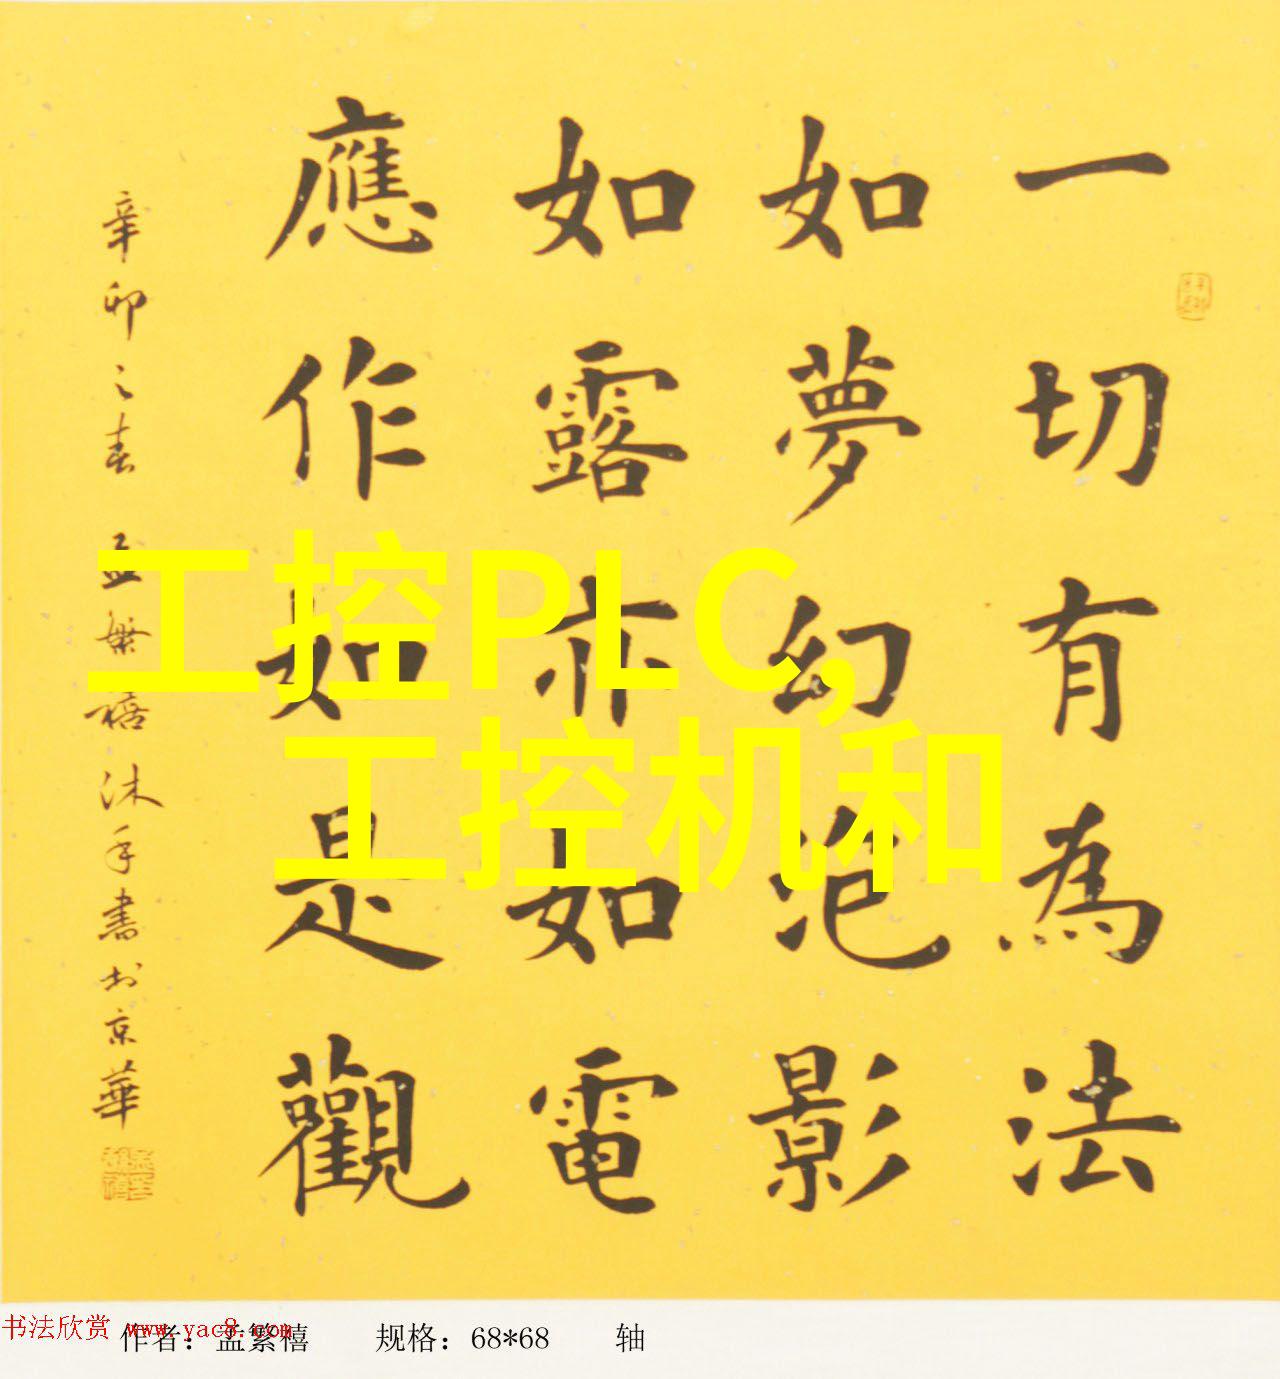 一切有為法
如夢幻泡影
如露亦如電
應作如是觀
辛卯之春 孟繁禧沐手書於京華
工控PLC,
工控机和
书法欣赏 www.yac8.com
作者：孟繁禧 规格：68*68 轴